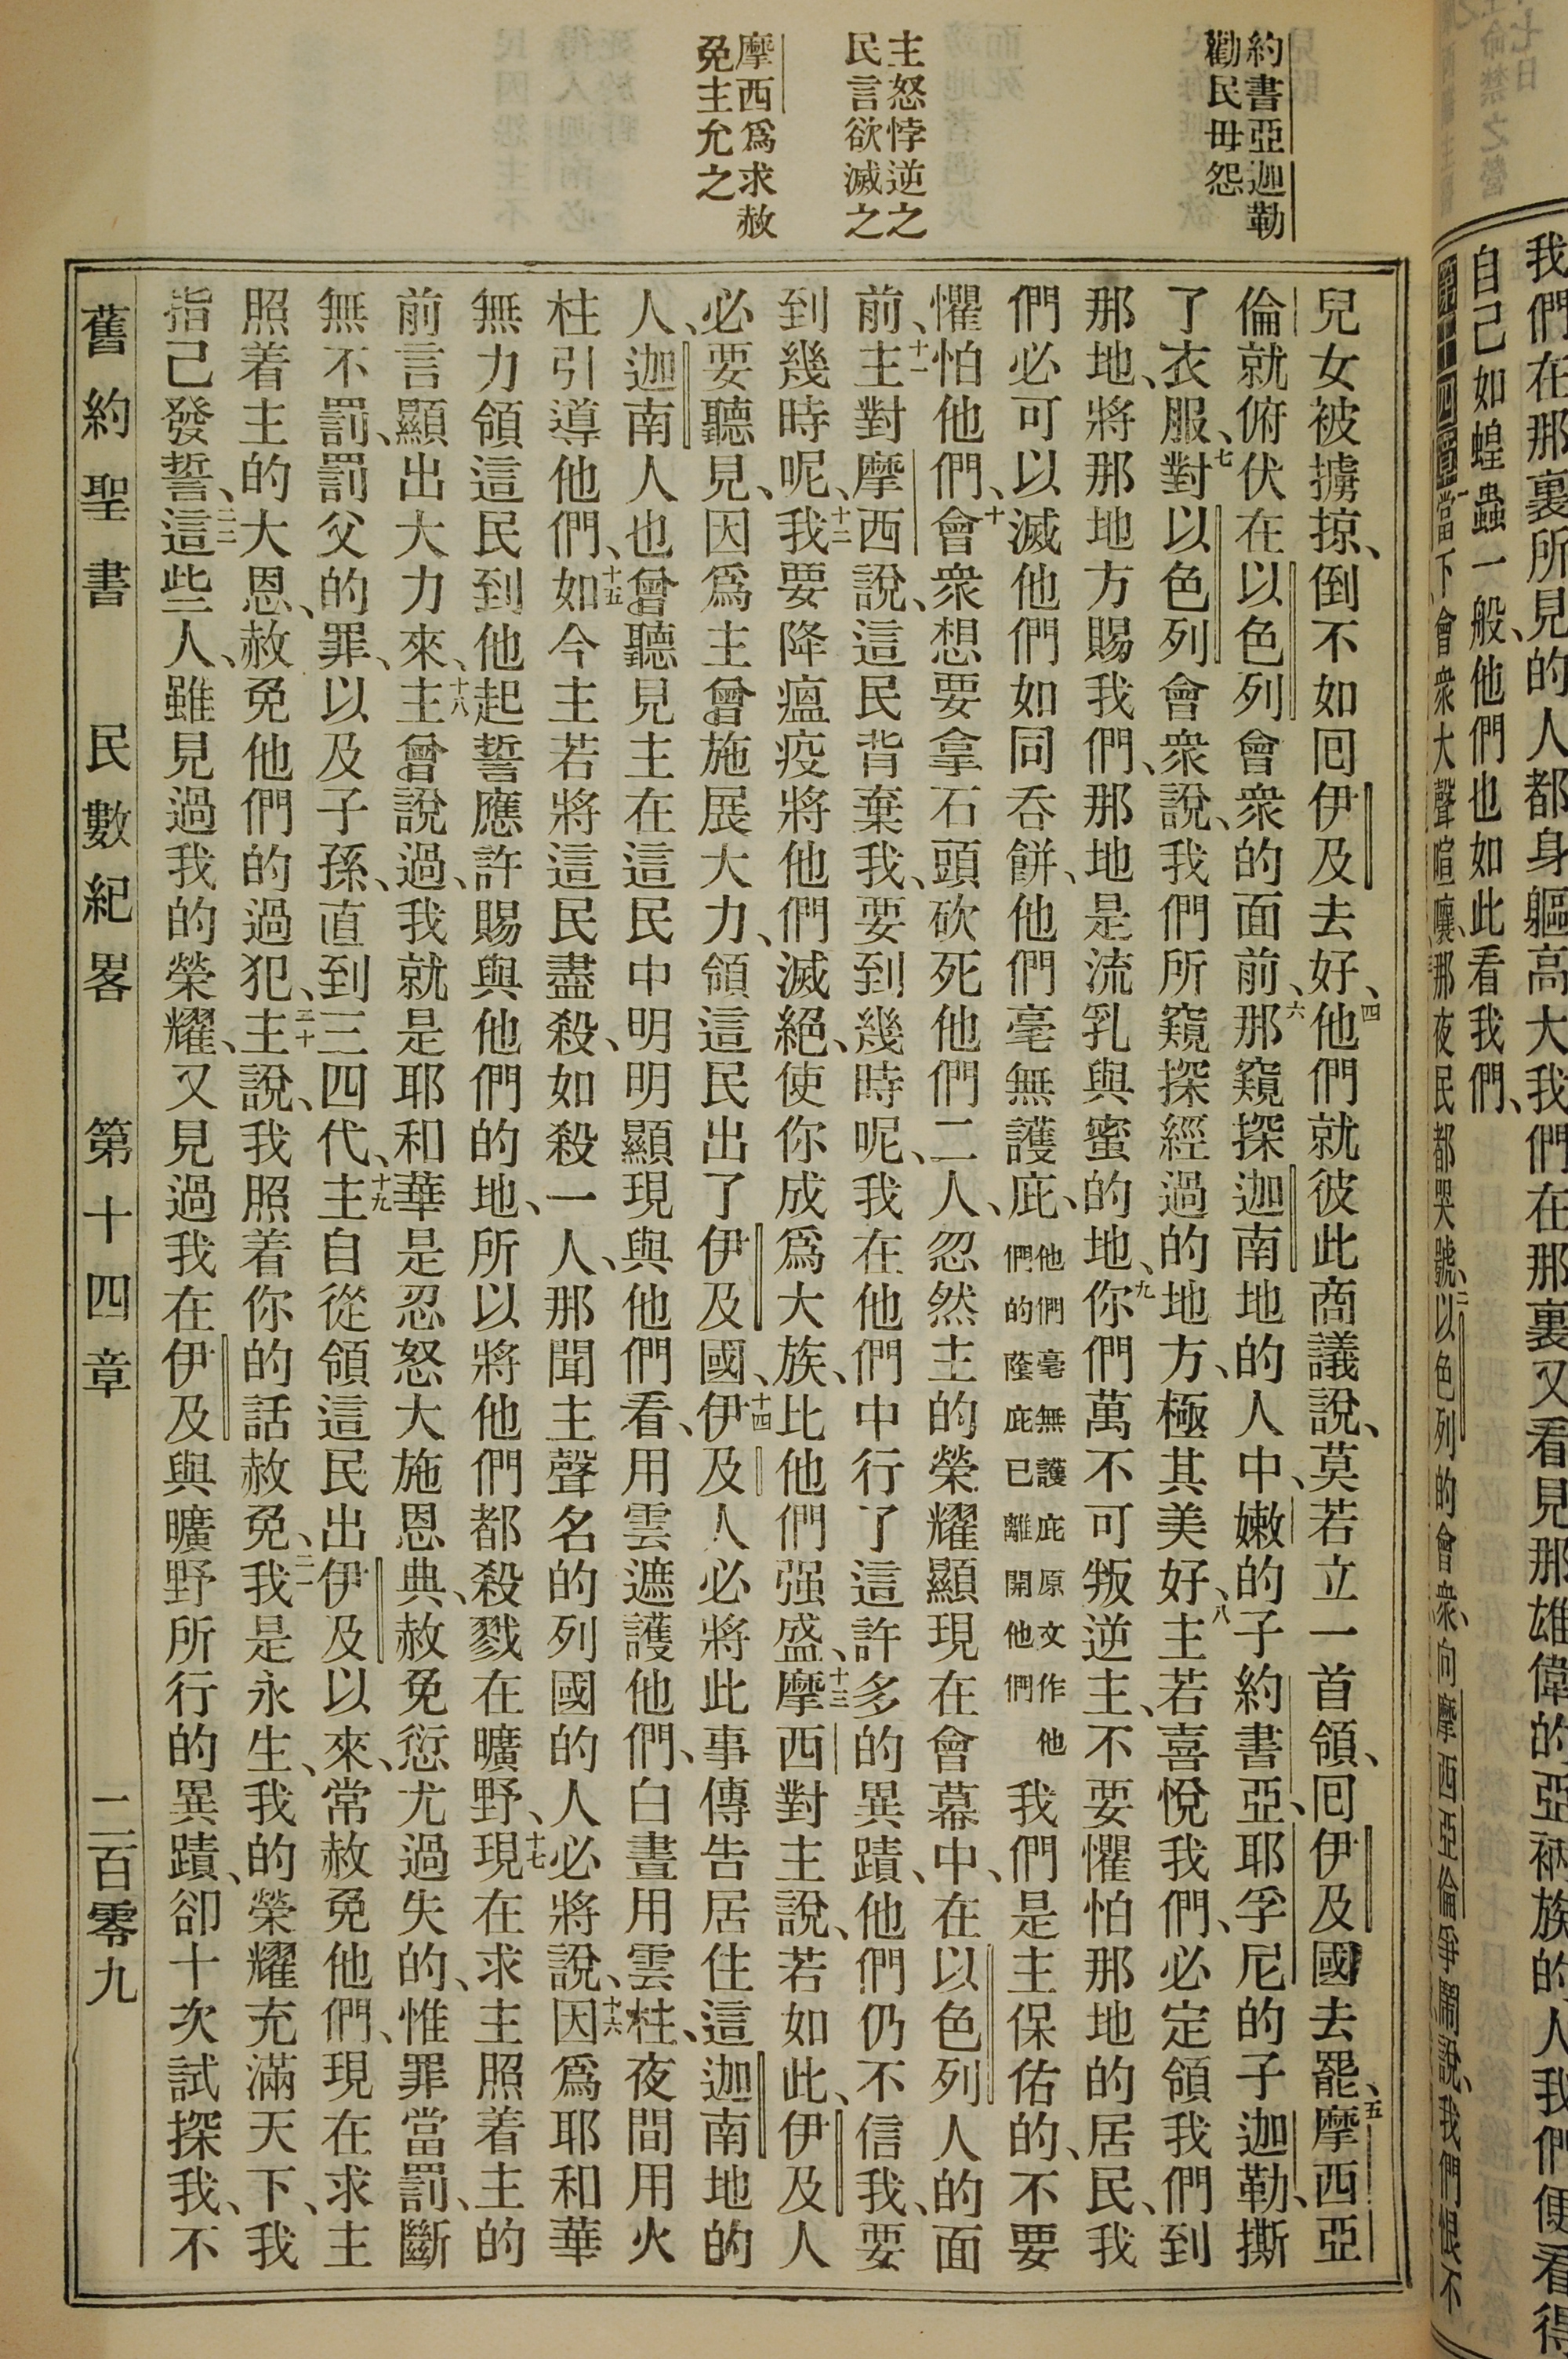 我們在那裏所見的人都身軀高大我們在那裏又看見那雄偉的亞衲族的人我們便看得
自己如蝗蟲一般、他們也如此看我們、
第十四章一當下會衆大聲喧嚷、那夜民都哭號、二以色列的會衆、向摩西亞倫爭鬧說、我們恨不
約書亞迦勒
勸民毋怨
主怒悖逆之
民言欲滅之
摩西爲求赦
免主允之
兒女被擄掠、倒不如囘伊及去好、四他們就彼此商議說、莫若立一首領、囘伊及國去罷、五摩西亞
倫就俯伏在以色列會衆的面前、六那窺探迦南地的人中、嫩的子約書亞、耶孚尼的子迦勒、撕
了衣服、七對以色列會衆說、我們所窺探經過的地方、極其美好、八主若喜悅我們、必定領我們到
那地、將那地方賜我們、那地是流乳與蜜的地、九你們萬不可叛逆主、不要懼怕那地的居民、我
們必可以滅他們如同吞餅、他們毫無護庇、他們毫無護庇原文作他們的蔭庇已離開他們我們是主保佑的、不要
懼怕他們、十會衆想要拿石頭砍死他們二人、忽然主的榮耀顯現在會幕中、在以色列人的面
前、十一主對摩西說、這民背棄我、要到幾時呢、我在他們中行了這許多的異蹟、他們仍不信我、要
到幾時呢、十二我要降瘟疫將他們滅絕、使你成爲大族、比他們强盛、十三摩西對主說、若如此、伊及人
必要聽見、因爲主曾施展大力、領這民出了伊及國、十四伊及人必將此事傳告居住這迦南地的
人、迦南人也曾聽見主在這民中明明顯現與他們看、用雲遮護他們、白晝用雲柱、夜間用火
柱引導他們、十五如今主若將這民盡殺、如殺一人、那聞主聲名的列國的人必將說、十六因爲耶和華
無力領這民到他起誓應許賜與他們的地、所以將他們都殺戮在曠野、十七現在求主照着主的
前言顯出大力來、十八主曾說過、我就是耶和華是忍怒大施恩典、赦免愆尤過失的、惟罪當罰、斷
無不罰、罰父的罪、以及子孫、直到三四代、十九主自從領這民出伊及以來、常赦免他們、現在求主
照着主的大恩、赦免他們的過犯、二十主說、我照着你的話赦免、二一我是永生、我的榮耀充滿天下、我
指己發誓、二二這些人、雖見過我的榮耀、又見過我在伊及與曠野所行的異蹟、卻十次試探我、不
舊約聖書 民數紀畧 第十四章 二百零九